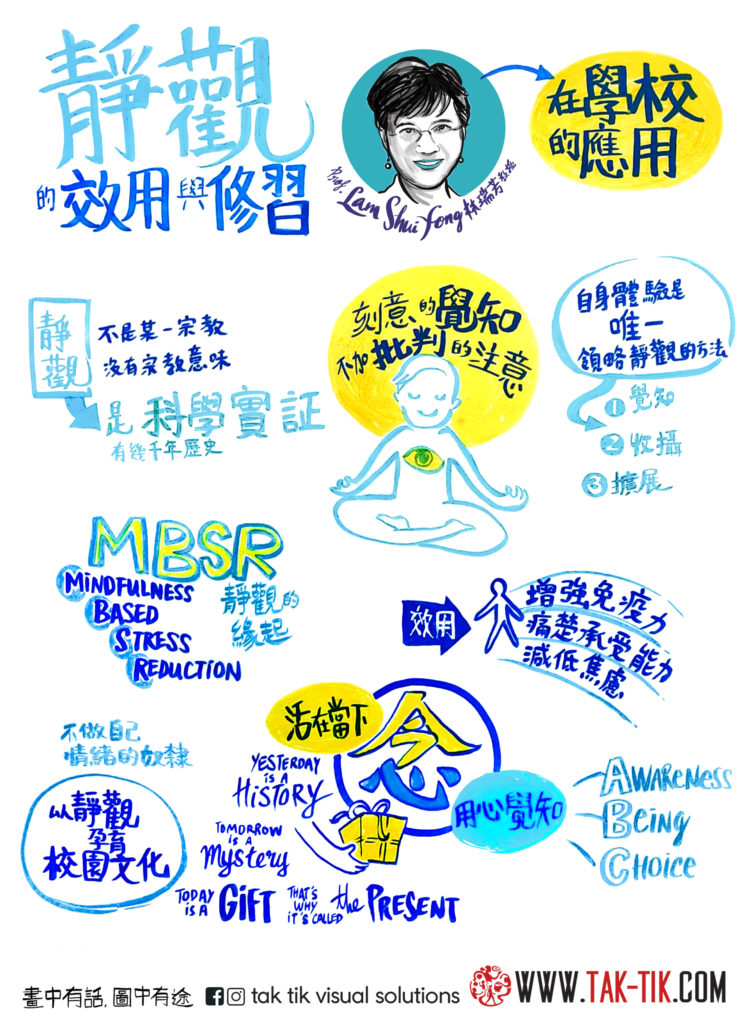 靜觀
的效用與修習
Prof. Lam Shui Fong 林瑞芳教授
在學校
的應用
靜觀
不是某一宗教
沒有宗教意味
是科學實証
有幾千年歷史
刻意的覺知
不加批判的注意
自身體驗是
唯一
領略靜觀的方法
1 覺知
2 收攝
3 擴展
MBSR
MiNDFULNESS
BASED
STRESS
REDUCTION
靜觀的
緣起
效用
增強免疫力
痛楚承受能力
減低焦慮
不做自己
情緒的奴隸
以靜觀
孕育
校園文化
活在當下
念
用心覺知
YESTERDAY
IS A
HiSTORY
TOMORROW
IS A
Mystery
TODAY
IS A
GiFT
THAT'S
WHY
iT'S CALLED
the PRESENT
AWAReNESS
BeiNg
CHoice
畫中有話, 圖中有途
tak tik visual solutions
WWW.TAK-TIK.COM